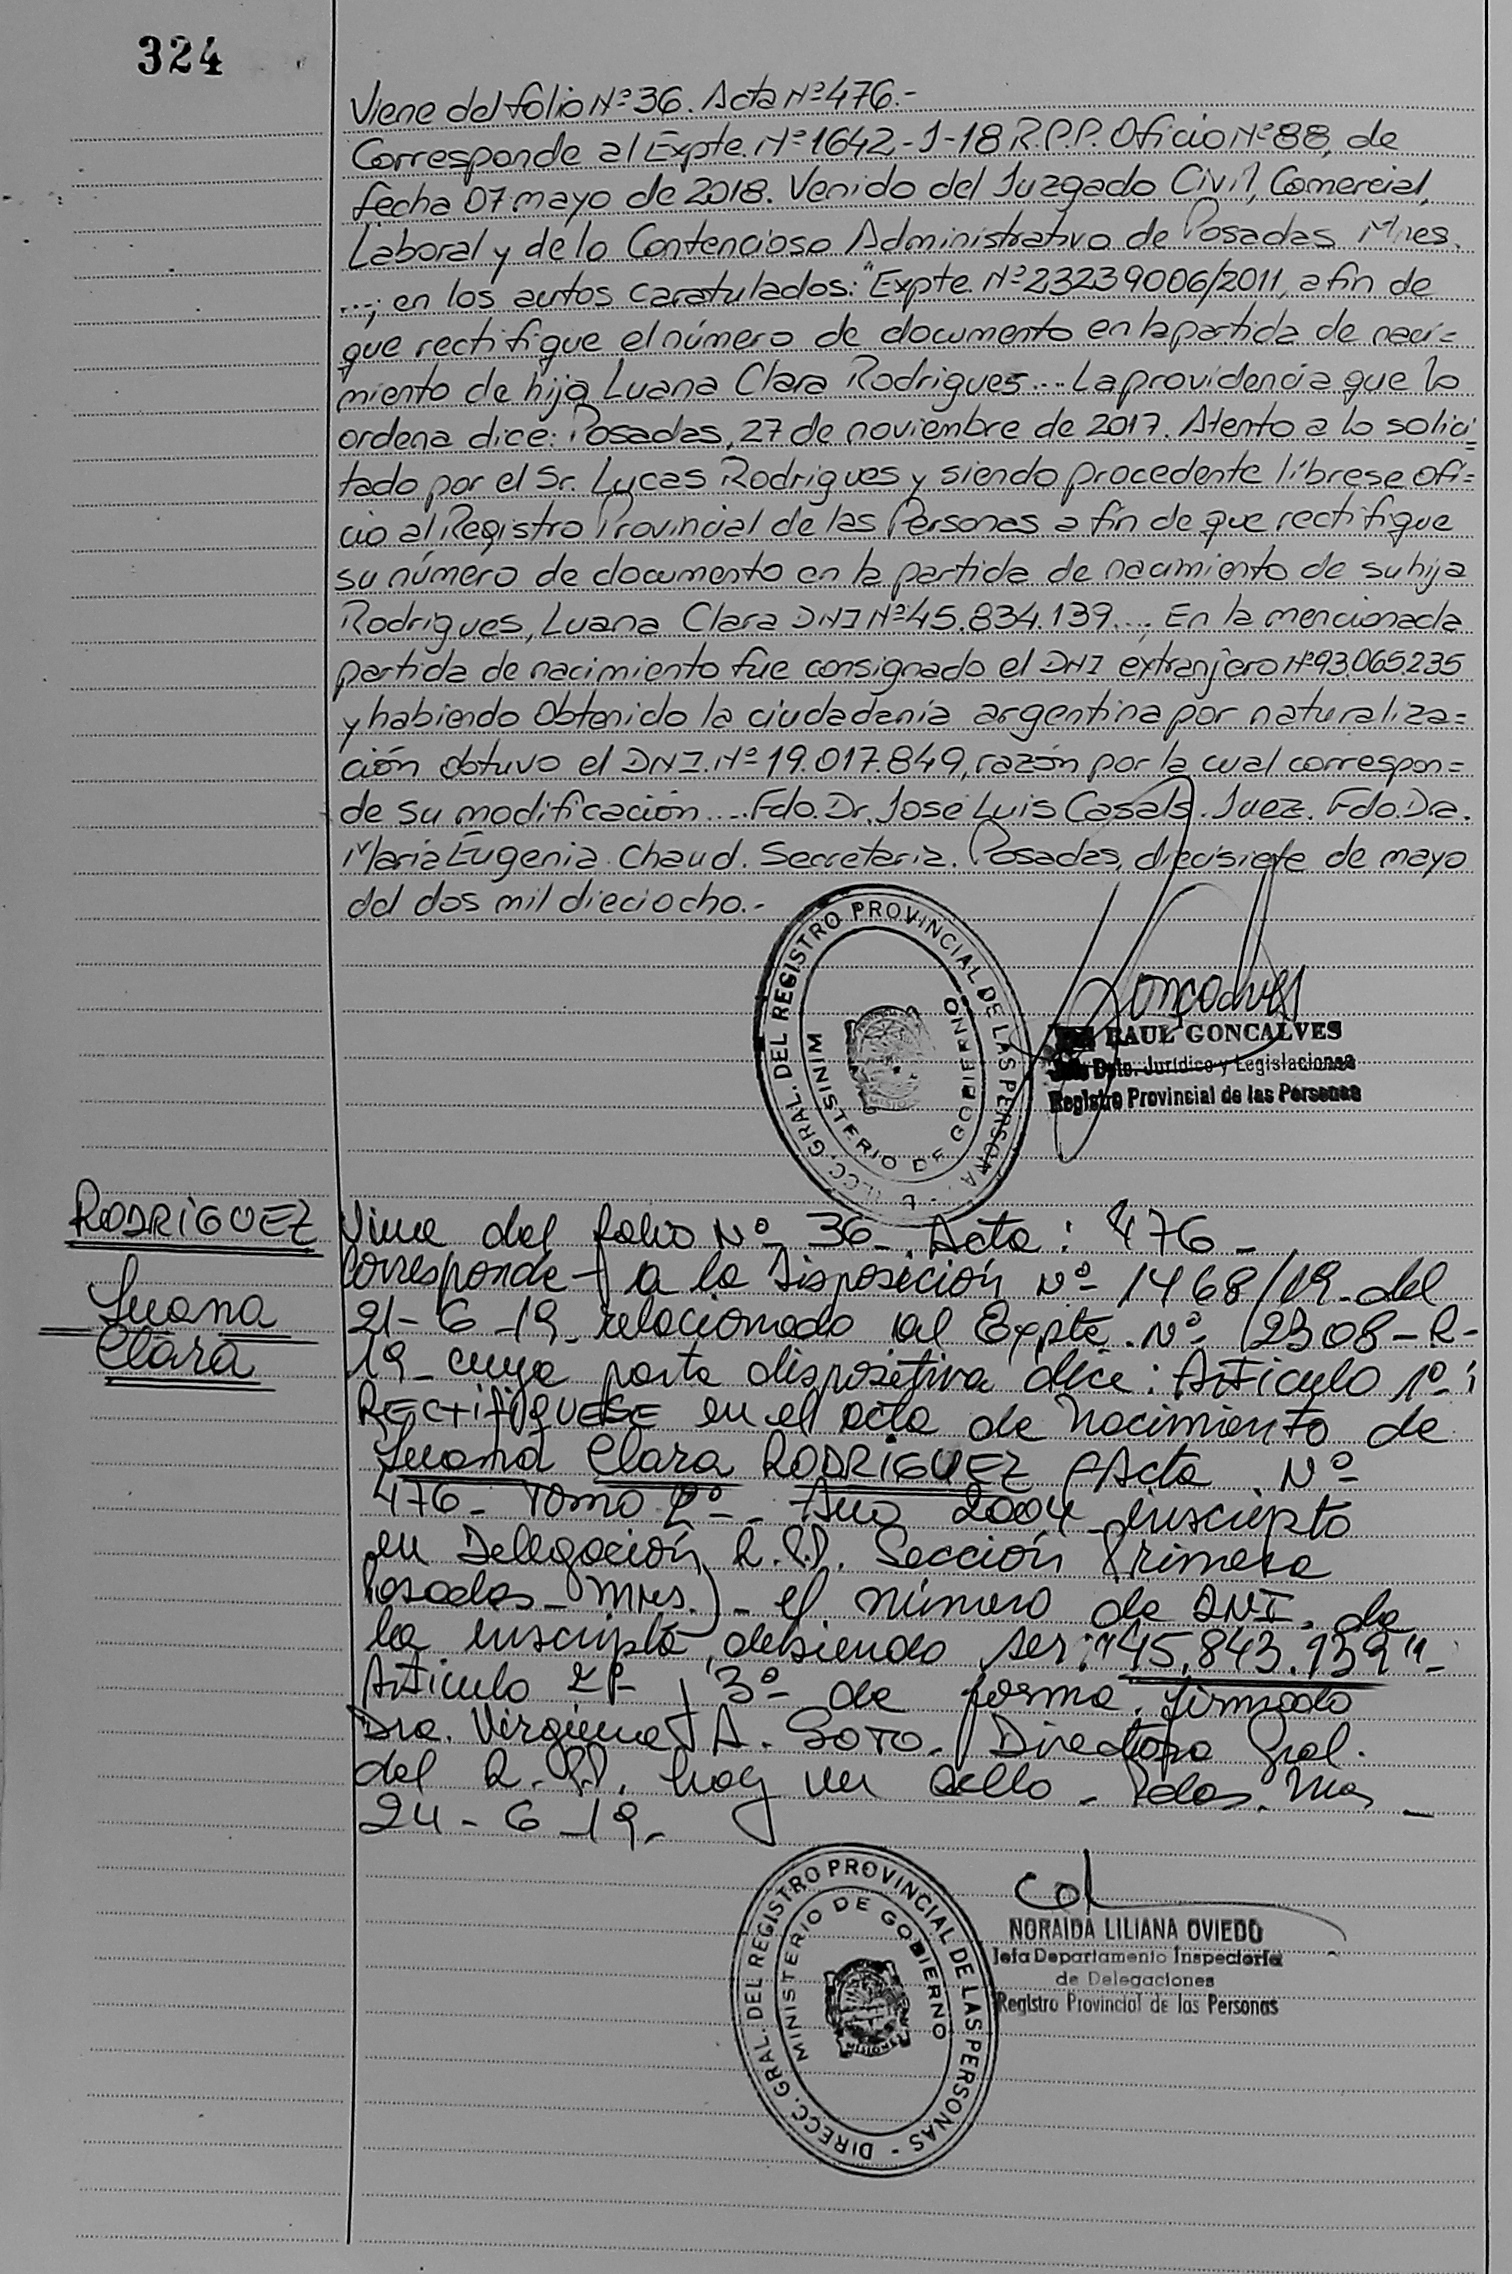 324
Viene del folio Nº 36. Acta Nº 476.-
Corresponde al Expte. Nº 1642-J-18 R.P.P. Oficio Nº 88, de
fecha 07 mayo de 2018. Venido del Juzgado Civil, Comercial,
Laboral y de lo Contencioso Administrativo de Posadas Mnes.
...; en los autos caratulados: "Expte. Nº 23239006/2011, a fin de
que rectifique el número de documento en la partida de naci=
miento de hija Luana Clara Rodrigues... La providencia que lo
ordena dice: Posadas, 27 de noviembre de 2017. Atento a lo solici=
tado por el Sr. Lucas Rodrigues y siendo procedente líbrese ofi=
cio al Registro Provincial de las Personas a fin de que rectifique
su número de documento en la partida de nacimiento de su hija
Rodrigues, Luana Clara DNI Nº 45.834.139... En la mencionada
partida de nacimiento fue consignado el DNI extranjero Nº 93.065.235
y habiendo obtenido la ciudadanía argentina por naturaliza=
ción obtuvo el DNI. Nº 19.017.849, razón por la cual correspon=
de su modificación.... Fdo. Dr. José Luis Casals. Juez. Fdo. Dra.
María Eugenia Chaud. Secretaria. Posadas, diecisiete de mayo
del dos mil dieciocho.-
DIRECC. GRAL. DEL REGISTRO PROVINCIAL DE LAS PERSONAS
MINISTERIO DE GOBIERNO
Goncalves
RAUL GONCALVES
Jefe Dpto. Jurídico y Legislaciones
Registro Provincial de las Personas
RODRIGUEZ
Luana
Clara
Viene del folio Nº 36-. Acta: 476-
Corresponde a la Disposición Nº 1468/19 del
21-6-19- relacionado al Expte. Nº 12308-R-
19- cuya parte dispositiva dice: Artículo 1º:
RECTIFIQUESE en el acta de nacimiento de
Luana Clara RODRIGUEZ (Acta Nº
476- Tomo 2º- Año 2004 inscripto
en Delegación R.P.P. Sección Primera
Posadas- Mnes.)- el número de DNI. de
la inscripta, debiendo ser: "45.843.139"-
Artículo 2º- y 3º- de forma. Firmado
Dra. Virginia A. SOTO. Directora Gral.
del R.P.P. hay un sello- Pdas. Mnes-
24-6-19.-
DIRECC. GRAL. DEL REGISTRO PROVINCIAL DE LAS PERSONAS -
MINISTERIO DE GOBIERNO
MISIONES
NORAIDA LILIANA OVIEDO
Jefa Departamento Inspectoría
de Delegaciones
Registro Provincial de las Personas